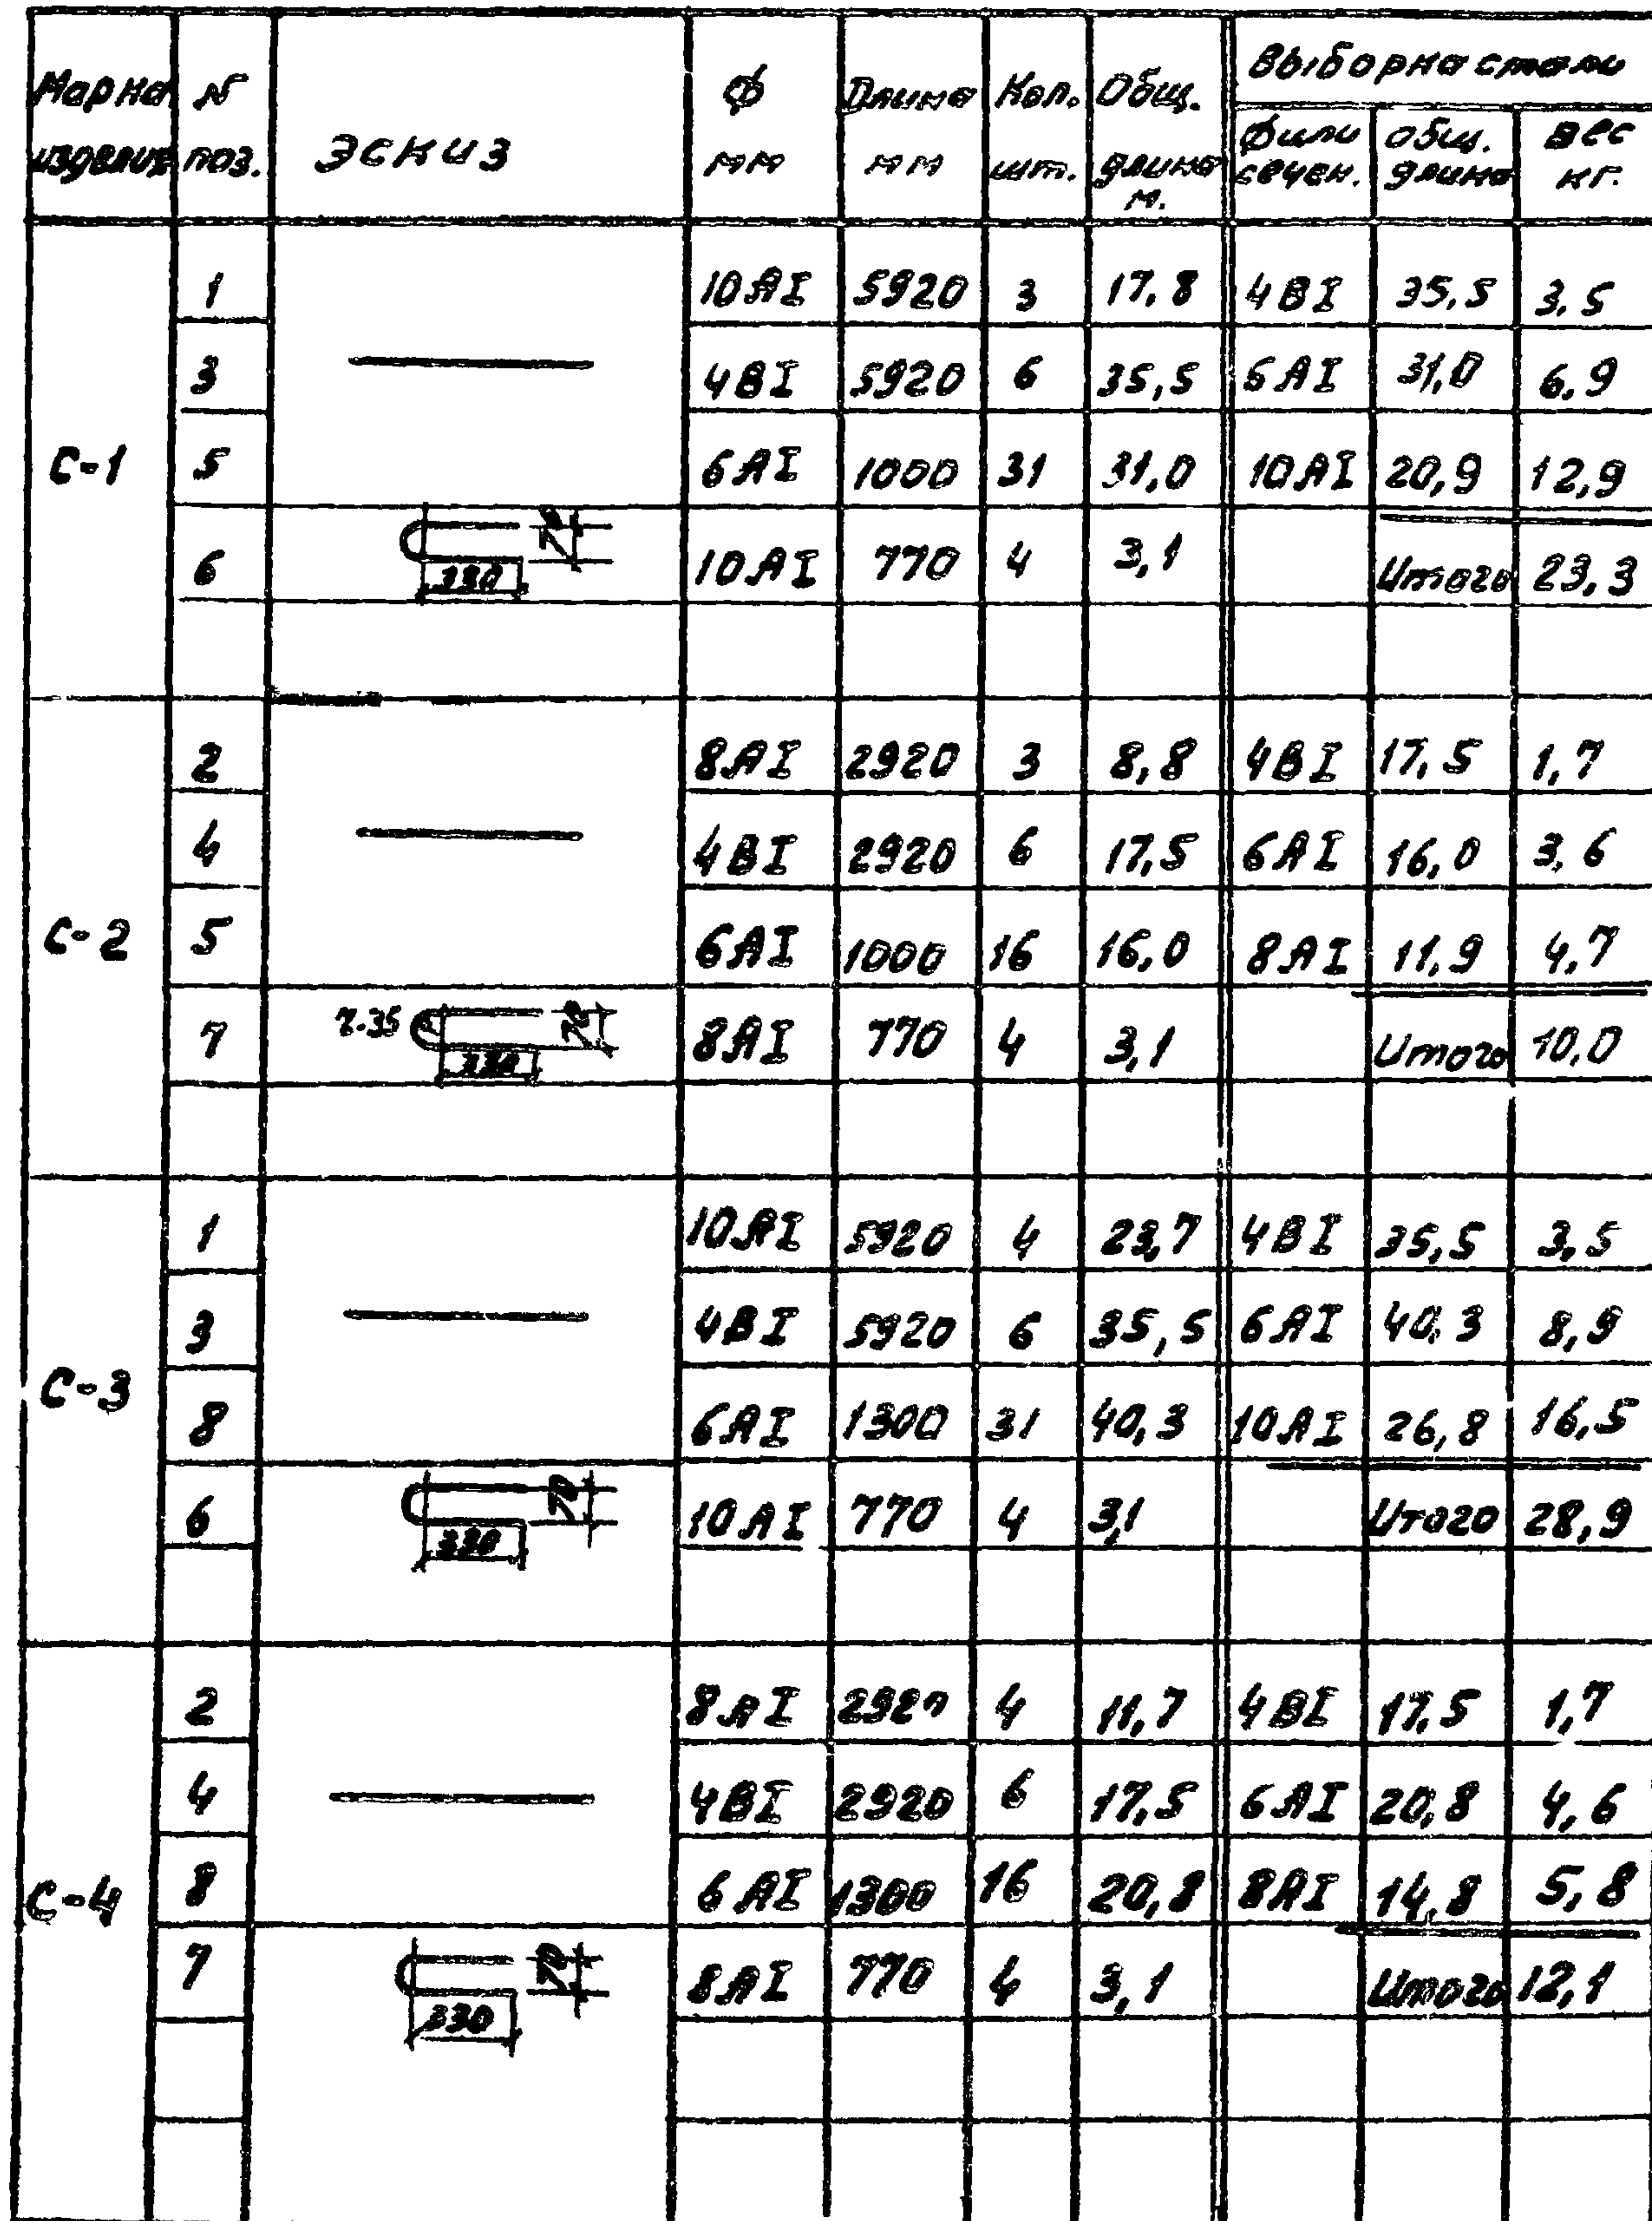 Марка изделия
N поз.
Эскиз
Ф мм
Длина мм
Кол. шт.
Общ. длина м.
Выборка стали
Ф или сечен.
общ. длина
вес кг.
С-1
1 10АI 5920 3 17,8 4ВI 35,5 3,5
3 4ВI 5920 6 35,5 6АI 31,0 6,9
5 6АI 1000 31 31,0 10АI 20,9 12,9
6 330 70 10АI 770 4 3,1 Итого 23,3
С-2
2 8АI 2920 3 8,8 4ВI 17,5 1,7
4 4ВI 2920 6 17,5 6АI 16,0 3,6
5 6АI 1000 16 16,0 8АI 11,9 4,7
7 330 70 8АI 770 4 3,1 Итого 10,0
С-3
1 10АI 5920 4 23,7 4ВI 35,5 3,5
3 4ВI 5920 6 35,5 6АI 40,3 8,9
8 6АI 1300 31 40,3 10АI 26,8 16,5
6 330 70 10АI 770 4 3,1 Итого 28,9
С-4
2 8АI 2920 4 11,7 4ВI 17,5 1,7
4 4ВI 2920 6 17,5 6АI 20,8 4,6
8 6АI 1300 16 20,8 8АI 14,8 5,8
7 330 70 8АI 770 4 3,1 Итого 12,1